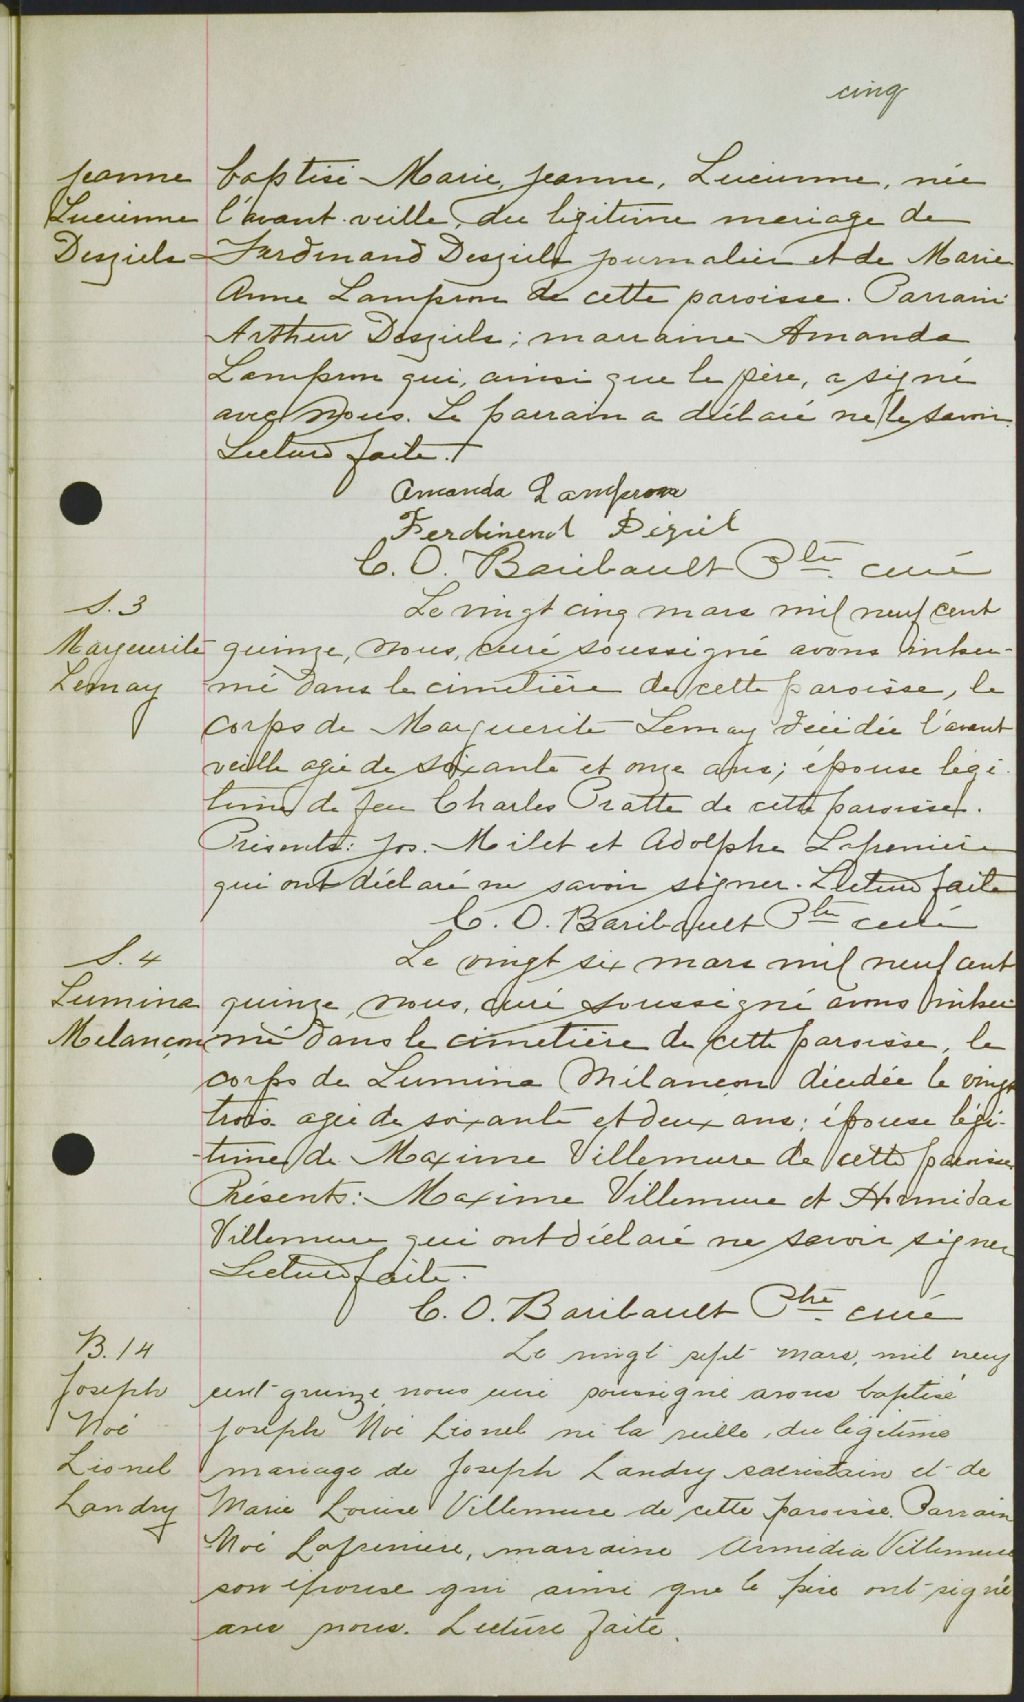 cinq
Jeanne
Lucienne
Desziels
baptisé Marie, Jeanne, Lucienne, née
l'avant-veille, du légitime mariage de
Ferdinand Desziels journalier et de Marie
Anne Lampron de cette paroisse. Parrain
Arthur Desziels; marraine Amanda
Lampron qui, ainsi que le père, a signé
avec nous. Le parrain a déclaré ne le savoir.
Lecture faite.
Amanda Lampron
Ferdinend Déziel
C. O. Baribault Ptre curé
S. 3
Marguerite
Lemay
Le vingt cinq mars mil neuf cent
quinze, nous, curé soussigné avons inhu-
mé dans le cimetière de cette paroisse, le
corps de Marguerite Lemay décédée l'avant
veille agée de soixante et onze ans; épouse légi-
time de feu Charles Pratte de cette paroisse.
Présents: Jos. Milet et Adolphe Lafrenière
qui ont déclaré ne savoir signer. Lecture faite
C. O. Baribault Ptre curé
S. 4
Lumina
Melançon
Le vingt six mars mil neuf cent
quinze, nous, curé soussigné avons inhu-
mé dans le cimetière de cette paroisse, le
corps de Lumina Mélançon décédée le vingt
trois agée de soixante et deux ans; épouse légi-
time de Maxime Villemure de cette paroisse
Présents: Maxime Villemure et Hormidas
Villemure qui ont déclaré ne savoir signer
Lecture faite.
C. O. Baribault Ptre curé
B. 14
Joseph
Noé
Lionel
Landry
Le vingt sept mars, mil neuf
cent quinze nous curé soussigné avons baptisé
Joseph Noé Lionel né la veille, du légitime
mariage de Joseph Landry sacristain et de
Marie Louise Villemure de cette paroisse. Parrain
Noé Lafrenière, marraine Armédia Villemure
son épouse qui ainsi que le père ont signé
avec nous. Lecture faite.